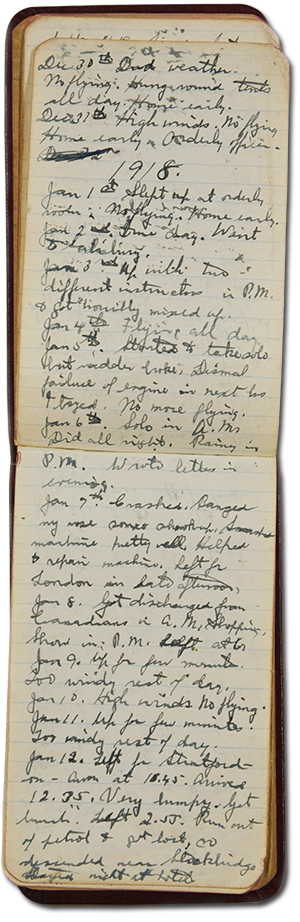 Dec 30th Dud weather.
No flying. Hung round tents
all day. Home early.
Dec 31th High winds. No flying
Home early. Orderly officer.
1918.
Jan 1st Slept up at orderly
room. No flying. Home early.
Jan 2nd Fine day. Went
to Salisbury.
Jan 3rd Up with two
different instructors in P.M.
& got horribly mixed up.
Jan 4th Flying all day.
Jan 5th. Started to take solo
but rudder broke. Dismal
failure of engine in next bus
I tried. No more flying.
Jan 6th. Solo in A.M.
Did all right. Rainy in
P.M. Wrote letter in
evening.
Jan 7th Crashed. Banged
my nose some shook up. Smashed
machine pretty well. Helped
to repair machine. Left for
London in late afternoon,
Jan 8. Got discharged from
Canadians in A.M. Shopping.
Show in P.M. Left at 6
Jan 9. Up for few minutes.
Too windy rest of day.
Jan 10. High winds. No flying.
Jan 11. Up for few minutes.
Too windy rest of day.
Jan 12. Left for Stratford-
on-Avon at 10.45. Arrive
12.35. Very bumpy. Got
lunch. Left 2.55. Run out
of petrol & got lost, so
descended near Stockbridge
Stayed night at hotel